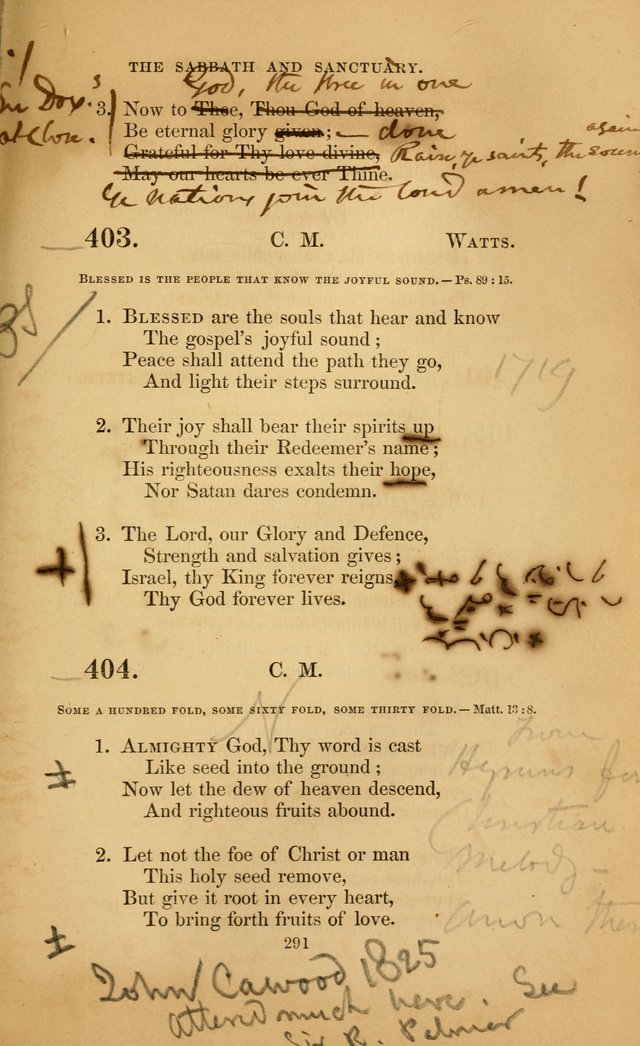 THE SABBATH AND SANCTUARY.
God, the three in one
3. Now to Thee, Thou God of heaven,
Be eternal glory given; — done
at close.
again
Grateful for Thy love divine, Raise, ye saints, the soun
May our hearts be ever Thine.
Ye nations join the loud amen!
403. C. M. WATTS.
BLESSED IS THE PEOPLE THAT KNOW THE JOYFUL SOUND.—Ps. 89:15.
1. BLESSED are the souls that hear and know
The gospel's joyful sound;
Peace shall attend the path they go,
And light their steps surround.
1719
2. Their joy shall bear their spirits up
Through their Redeemer's name;
His righteousness exalts their hope,
Nor Satan dares condemn.
3. The Lord, our Glory and Defence,
Strength and salvation gives;
Israel, thy King forever reigns,
Thy God forever lives.
404. C. M.
SOME A HUNDRED FOLD, SOME SIXTY FOLD, SOME THIRTY FOLD.—Matt. 13:8.
1. ALMIGHTY God, Thy word is cast
Like seed into the ground;
Now let the dew of heaven descend,
And righteous fruits abound.
from
Hymns for
Christian
Melody—
2. Let not the foe of Christ or man
This holy seed remove,
But give it root in every heart,
To bring forth fruits of love.
Anon
291
John Cawood 1825
Altered much here. See
Sir R. Palmer